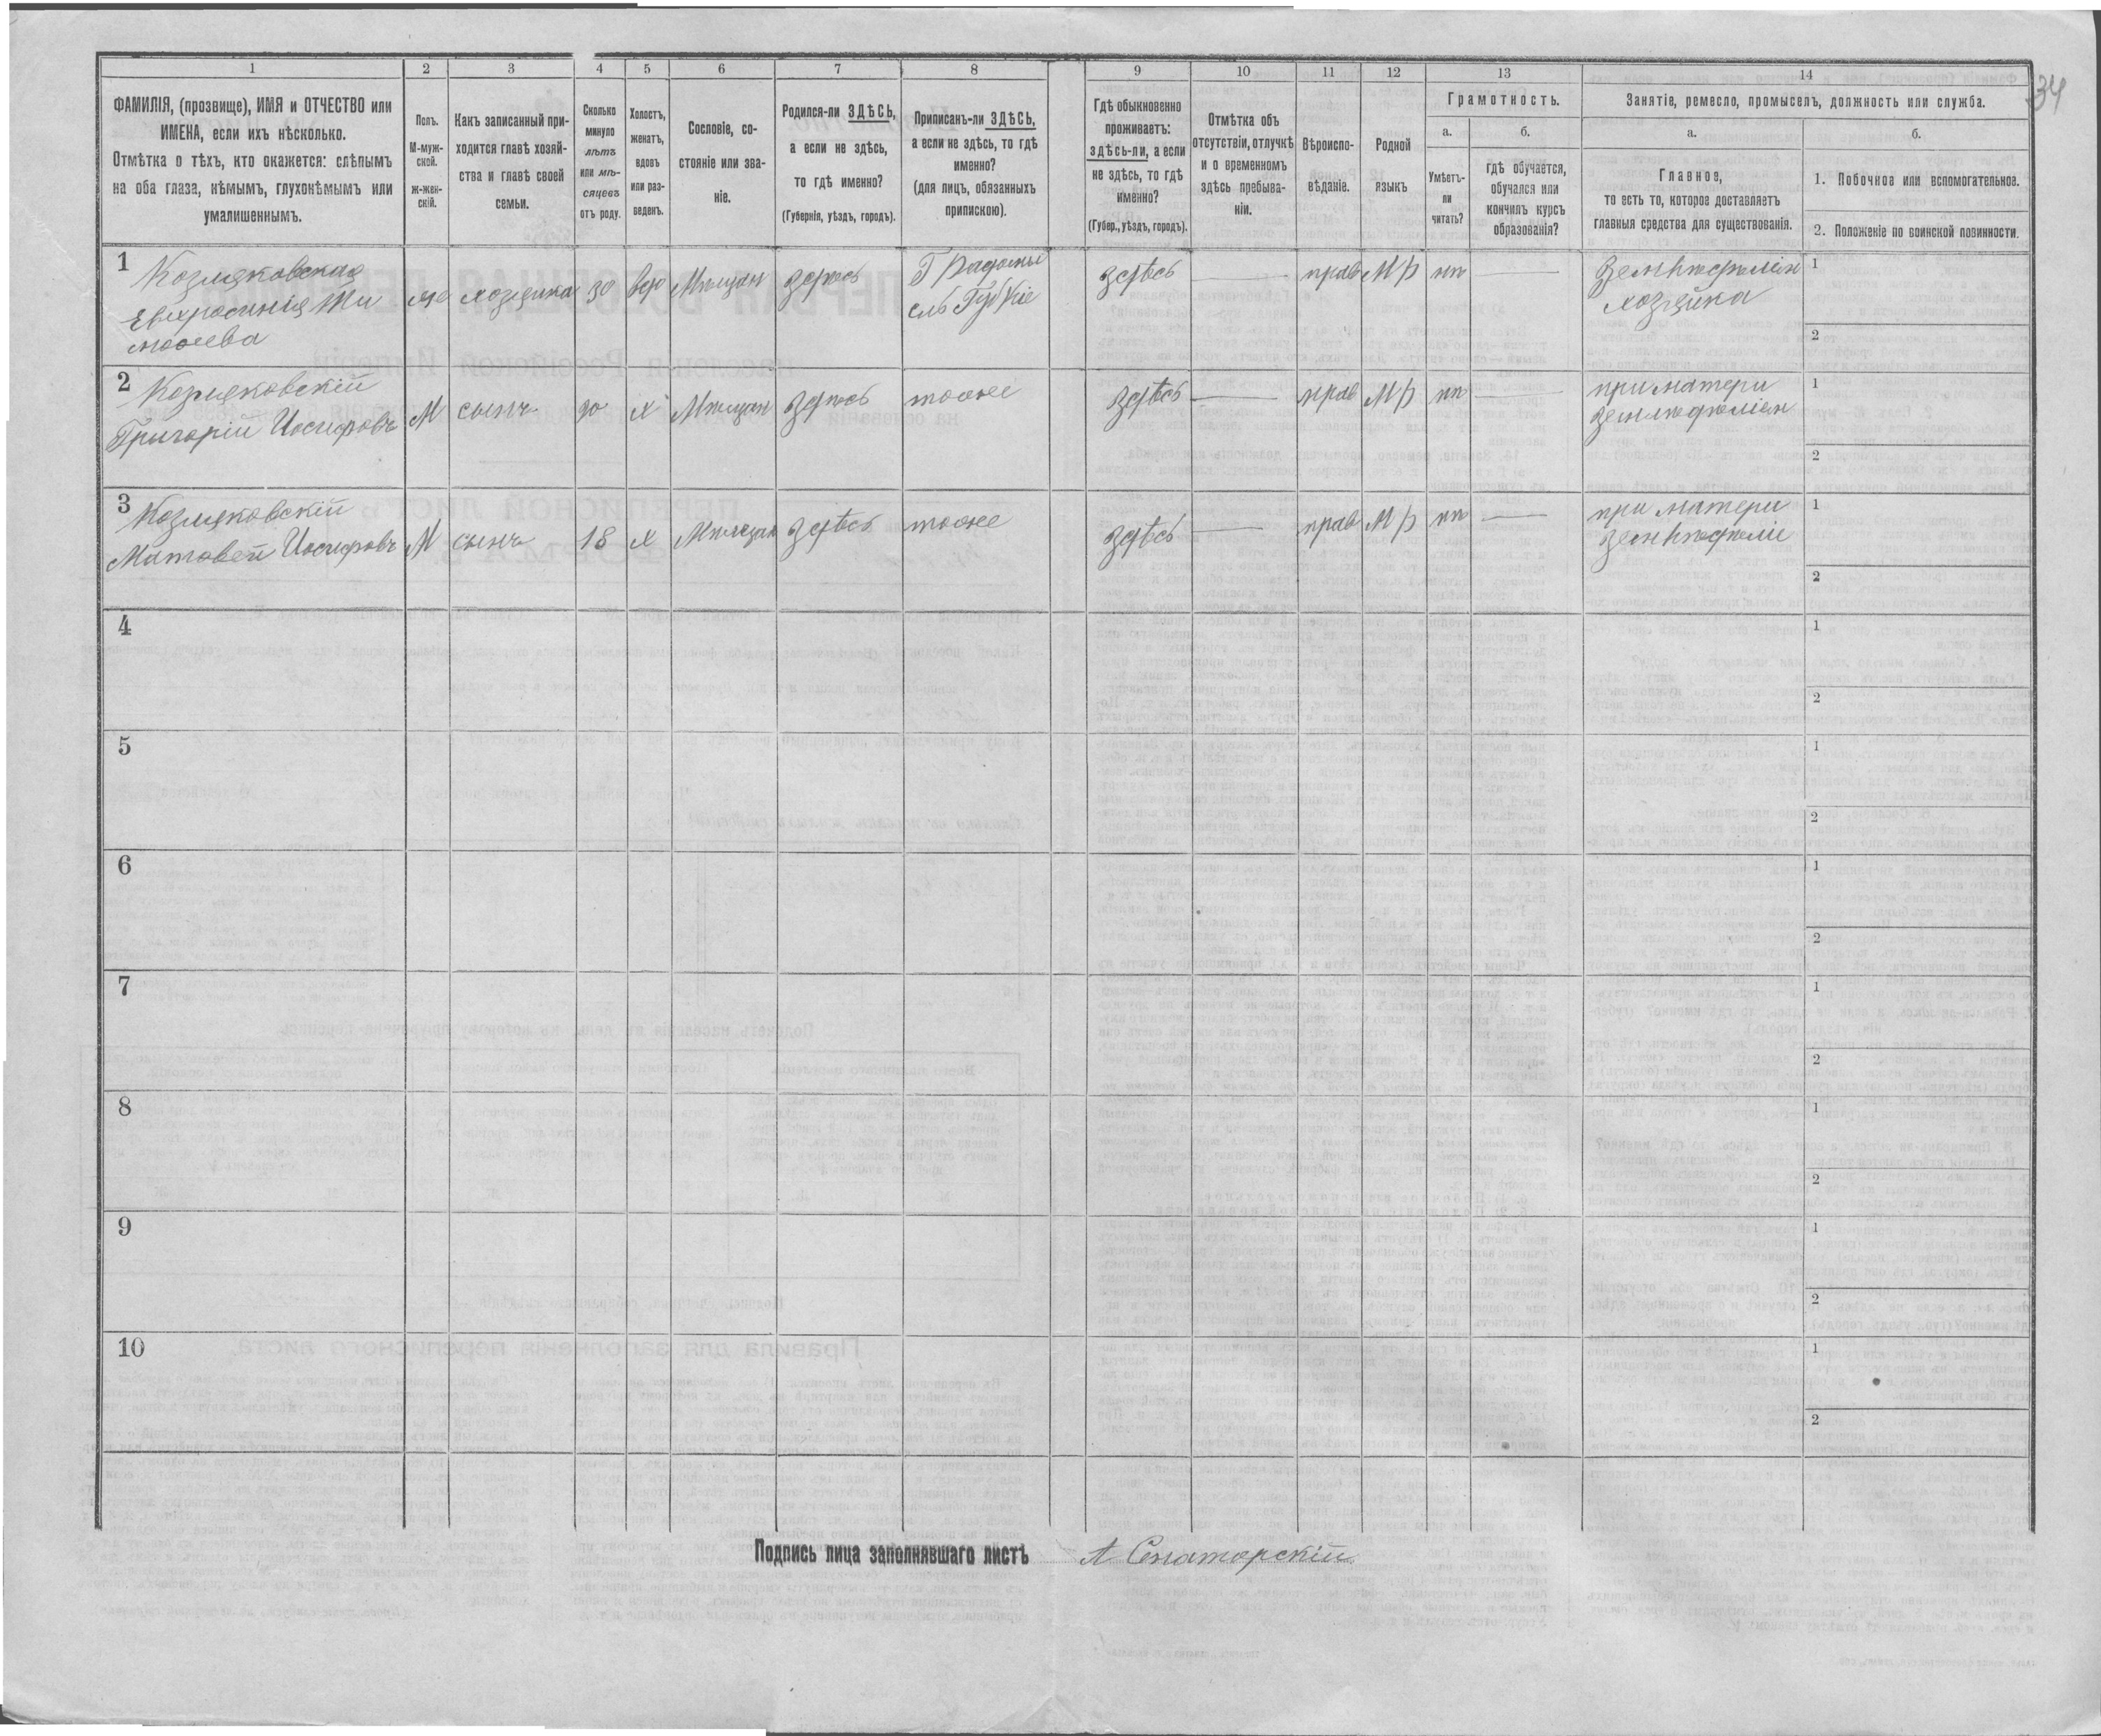 34
1 2 3 4 5 6 7 8 9 10 11 12 13 14
ФАМИЛІЯ, (прозвище), ИМЯ и ОТЧЕСТВО или
ИМЕНА, если ихъ нѣсколько.
Отмѣтка о тѣхъ, кто окажется: слѣпымъ
на оба глаза, нѣмымъ, глухонѣмымъ или
умалишеннымъ.
Полъ.
М-муж-
ской.
ж-жен-
скій.
Какъ записанный при-
ходится главѣ хозяй-
ства и главѣ своей
семьи.
Сколько
минуло
лѣтъ
или мѣ-
сяцевъ
отъ роду.
Холостъ,
женатъ,
вдовъ
или раз-
веденъ.
Сословіе, со-
стояніе или зва-
ніе.
Родился-ли ЗДѢСЬ,
а если не здѣсь,
то гдѣ именно?
(Губернія, уѣздъ, городъ).
Приписанъ-ли ЗДѢСЬ,
а если не здѣсь, то гдѣ
именно?
(для лицъ, обязанныхъ
припискою).
Гдѣ обыкновенно
проживаетъ:
здѣсь-ли, а если
не здѣсь, то гдѣ
именно?
(Губер., уѣздъ, городъ).
Отмѣтка объ
отсутствіи, отлучкѣ
и о временномъ
здѣсь пребыва-
ніи.
Вѣроиспо-
вѣданіе.
Родной
языкъ
Грамотность.
а.
Умѣетъ-
ли
читать?
б.
гдѣ обучается,
обучался или
кончилъ курсъ
образованія?
Занятіе, ремесло, промыселъ, должность или служба.
а.
Главное,
то есть то, которое доставляетъ
главныя средства для существованія.
б.
1. Побочное или вспомогательное.
2. Положеніе по воинской повинности.
1
Козляковская
Евфросинія Ти
мофеева
же хозяика 50 вдо Мѣщан здѣсь
здѣсь — прав МР нѣ —
Землѣдѣліем
хозяйка
1
2
2
Козляковскій
Григорій Иосифовъ
М сынъ 20 х Мѣщан здѣсь тоже здѣсь — прав МР нѣ —
при матери
землѣдѣліем
1
2
3
Козляковскій
Матовей Иосифовъ
М сынъ 18 х Мѣщан здѣсь тоже здѣсь — прав МР нѣ —
при матери
землѣдѣліе
1
2
4
1
2
5
1
2
6
1
2
7
1
2
8
1
2
9
1
2
10
1
2
Подпись лица заполнявшаго листъ А Сенаторскій